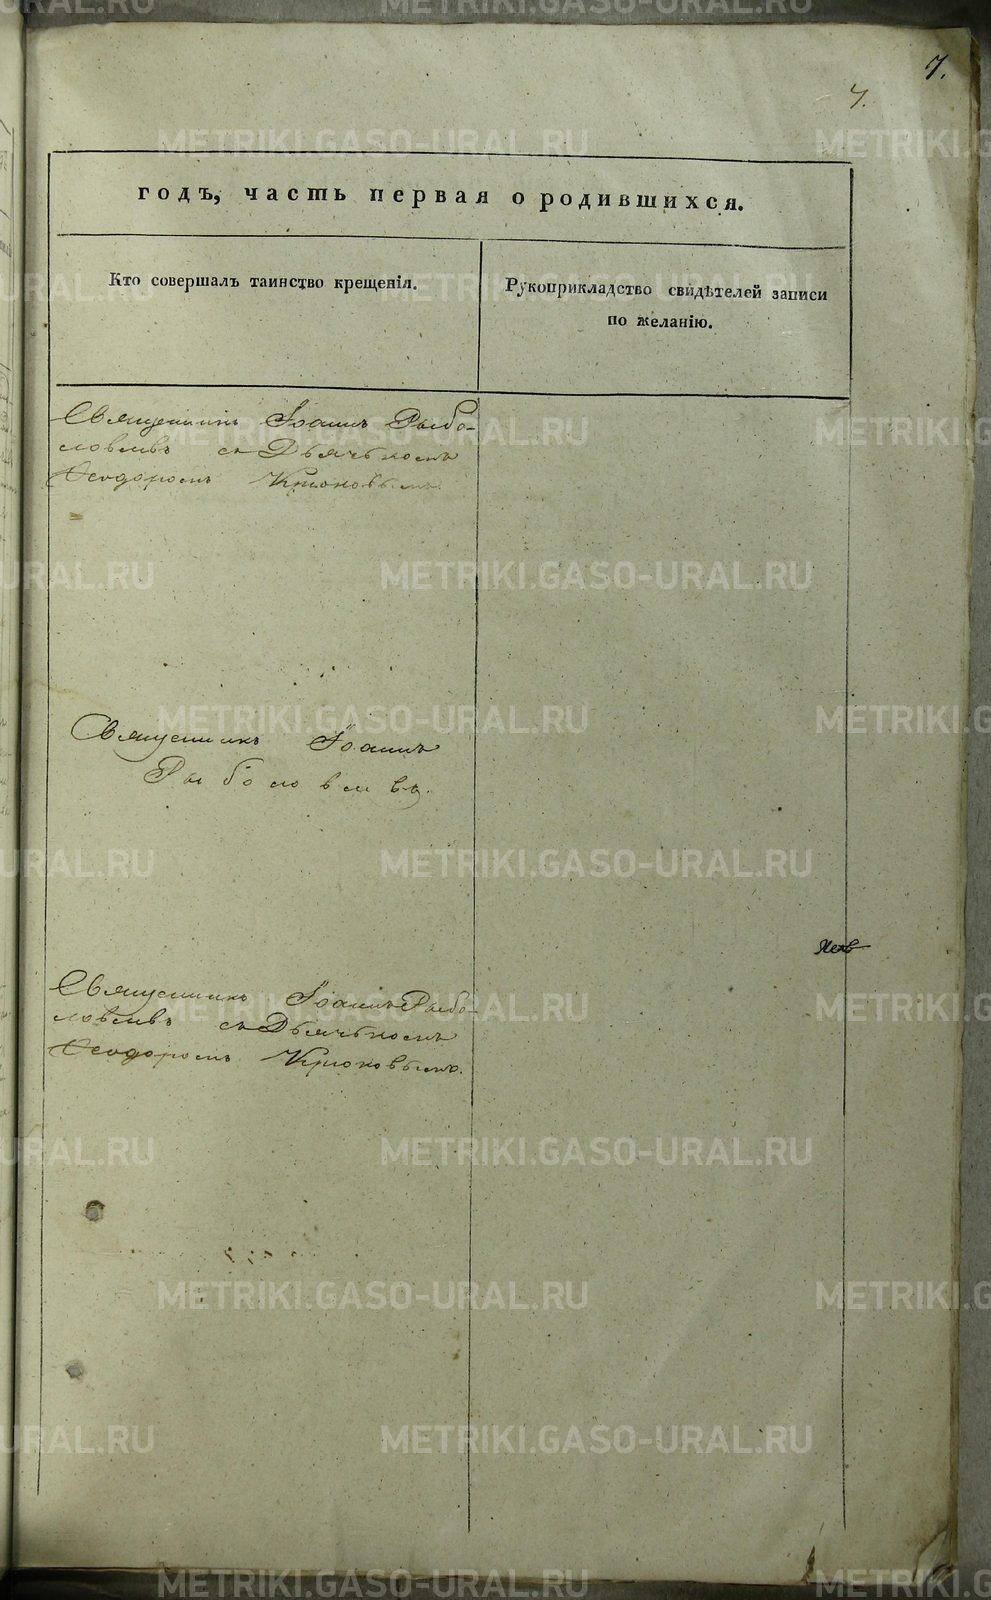 7.
7.
годъ, часть первая о родившихся.
Кто совершалъ таинство крещенія.
Рукоприкладство свидѣтелей записи
по желанію.
Священникъ Іоаннъ Рыбо-
ловлевъ съ Дьячькомъ
Ѳеодоромъ Крюковымъ.
Священникъ Іоаннъ
Рыболовлевъ.
Священникъ Іоаннъ Рыбо-
ловлевъ съ Дьячькомъ
Ѳеодоромъ Крюковымъ.
METRIKI.GASO-URAL.RU